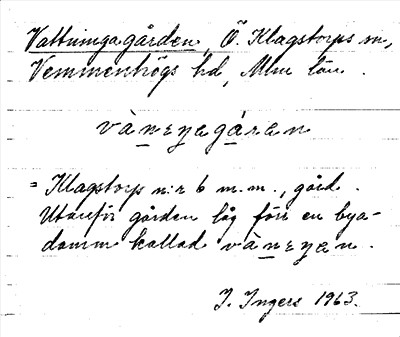 Vattningagården, Ö. Klagstorps sn,
Vemmenhögs hd, Mlm län.
vànıŋagáṛen
= Klagstorp n:r 6 m.m., gård.
Utanför gården låg förr en bya-
damm kallad
I. Ingers 1963.